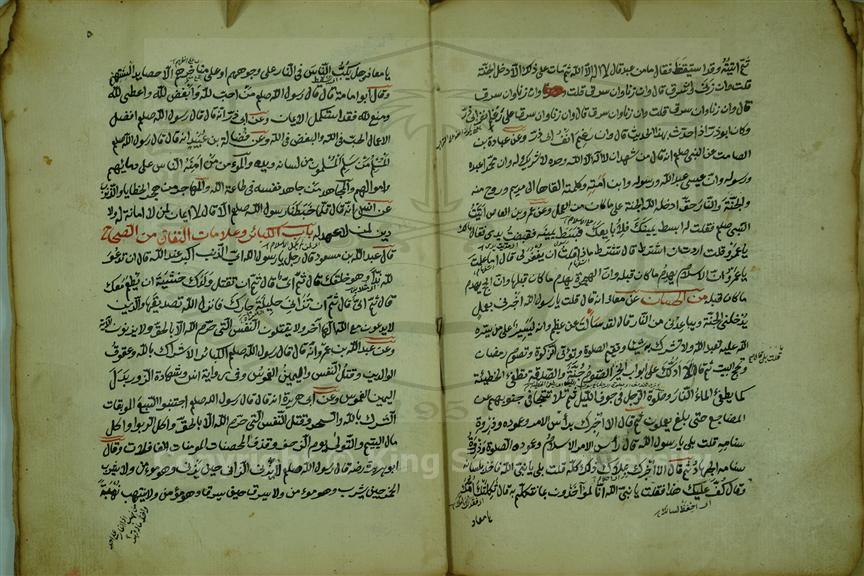 ثم اتيته وقد استيقظ فقال ما من عبد قال لا اله الا الله ثم مات على ذلك الا دخل الجنة
قلت وان زنى وان سرق قال وان زنا وان سرق قلت وان زنا وان سرق
قال وان زنا وان سرق قلت وان زنا وان سرق قال وان زنا وان سرق على رغم انف ابي ذر
وكان ابو ذر اذا حدث بهذا الحديث قال وان رغم انف ابي ذر وعن عبادة بن
الصامت عن النبي صلعم انه قال من شهد ان لا اله الا الله وحده لا شريك له وان محمدا عبده
ورسوله وان عيسى عبد الله ورسوله وابن امته وكلمته القاها الى مريم وروح منه
والجنة والنار حق ادخله الله الجنة على ما كان من العمل وعن عمرو بن العاص اتيت
النبي صلعم فقلت ابسط يمينك فلابايعك فبسط يمينه فقبضت يدي فقال مالك
يا عمرو قلت اردت ان اشترط قال تشترط ماذا قلت ان يغفر لي قال اما علمت
يا عمرو ان الاسلام يهدم ما كان قبله وان الهجرة تهدم ما كان قبلها وان الحج يهدم
ما كان قبله من الحسان عن معاذ انه قال قلت يا رسول الله اخبرني بعمل
يدخلني الجنة ويباعدني من النار قال لقد سالت عن عظيم وانه ليسير على من يسره
الله عليه تعبد الله ولا تشرك به شيئا وتقيم الصلوة وتؤتي الزكوة وتصوم رمضان
وتحج البيت ثم قال الا ادلك على ابواب الخير الصوم جنة والصدقة تطفئ الخطيئة
كما يطفئ الماء النار وصلوة الرجل في جوف الليل ثم تلا تتجافى جنوبهم عن
المضاجع حتى بلغ يعملون ثم قال الا اخبرك براس الامر وعموده وذروة
سنامه قلت بلى يا رسول الله قال راس الامر الاسلام وعموده الصلوة وذروة
سنامه الجهاد ثم قال الا اخبرك بملاك ذلك كله قلت بلى يا نبي الله فاخذ بلسانه
وقال كف عليك هذا فقلت يا نبي الله انا لمؤاخذون بما نتكلم به قال ثكلتك امك
اي احفظ لسانك
يا معاذ
يا معاذ وهل يكب الناس في النار على وجوههم او على مناخرهم الا حصايد السنتهم
وقال ابو امامة قال قال رسول الله صلعم من احب لله وابغض لله واعطى لله
ومنع لله فقد استكمل الايمان وعن ابي ذر انه قال قال رسول الله صلعم افضل
الاعمال الحب في الله والبغض في الله وعن فضالة بن عبيد انه قال قال رسول الله صلعم
المسلم من سلم المسلمون من لسانه ويده والمؤمن من امنه الناس على دمايهم
واموالهم والمجاهد من جاهد نفسه في طاعة الله والمهاجر من هجر الخطايا والذنوب
عن انس انه قال قلما خطبنا رسول الله صلعم الا قال لا ايمان لمن لا امانة له ولا
دين لمن لا عهد له باب الكبائر وعلامات النفاق من الصحاح
قال عبد الله بن مسعود قال رجل يا رسول الله اي الذنب اكبر عند الله قال ان تدعو
لله ندا وهو خلقك قال ثم اي قال ثم ان تقتل ولدك خشية ان يطعم معك
قال ثم اي قال ثم ان تزاني حليلة جارك فانزل الله تصديقها والذين
لا يدعون مع الله الها آخر ولا يقتلون النفس التي حرم الله الا بالحق ولا يزنون الآية
وعن عبد الله بن عمرو انه قال قال رسول الله صلعم الكبائر الاشراك بالله وعقوق
الوالدين وقتل النفس واليمين الغموس وفي رواية انس وشهادة الزور بدل
اليمين الغموس وعن ابي هريرة انه قال قال رسول الله صلعم اجتنبوا السبع الموبقات
الشرك بالله والسحر وقتل النفس التي حرم الله الا بالحق واكل الربوا واكل
مال اليتيم والتولي يوم الزحف وقذف المحصنات المؤمنات الغافلات وقال
ابو هريرة رضه قال رسول الله صلعم لا يزني الزاني حين يزني وهو مؤمن ولا يشرب
الخمر حين يشرب وهو مؤمن ولا يسرق حين يسرق وهو مؤمن ولا ينتهب نهبة
Copyright © King Saud University
195